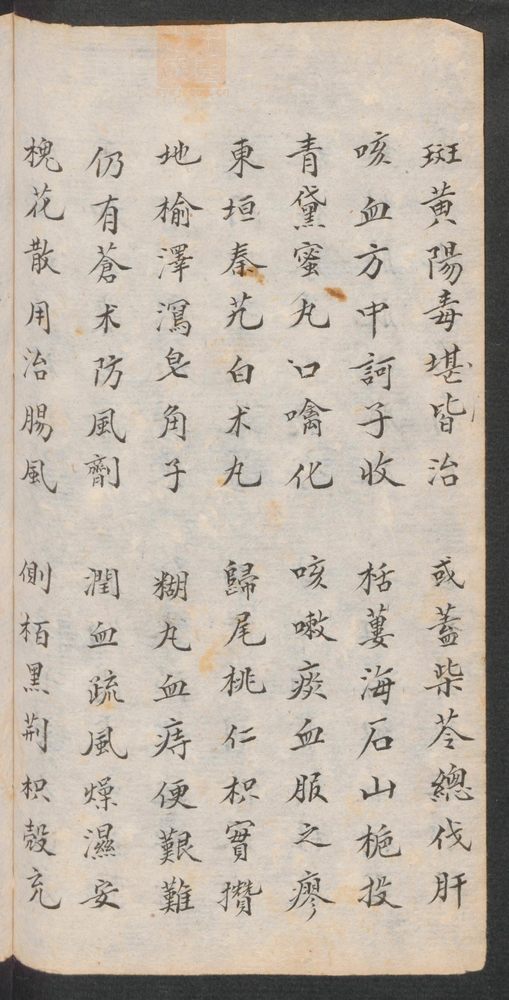 斑黃陽毒堪皆治　或蓋柴芩總伐肝
咳血方中訶子收　栝蔞海石山梔投
青黛蜜丸口噙化　咳嗽痰血服之瘳
東垣秦艽白朮丸　歸尾桃仁枳實攢
地榆澤瀉皂角子　糊丸血痔便艱難
仍有蒼朮防風劑　潤血疏風燥濕安
槐花散用治腸風　側栢黑荆枳殼充